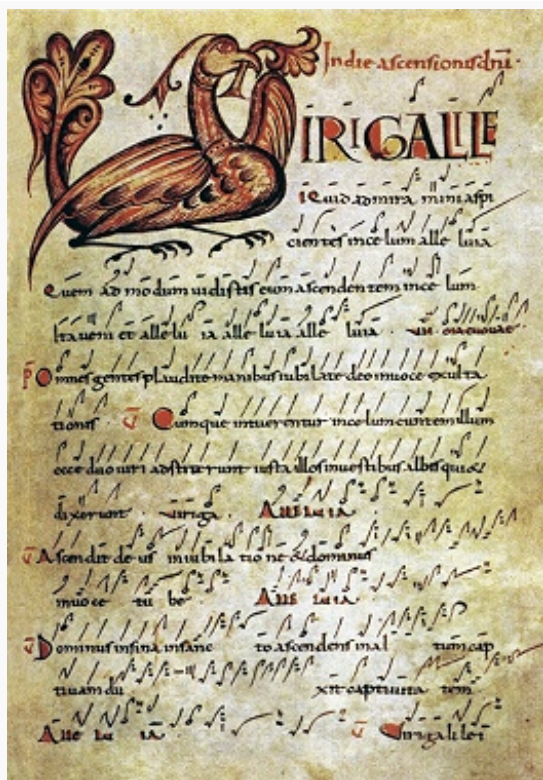 Indie ascensionis dnī.
VIRI GALILE
mira mini aspi
cientes ince lum alle luia
Quem ad modum uidistis eum ascendentem ince lum
Ita veni et alle lu ia alle luia alle luia
Omnes gentes plaudite manibus iubilate deo inuoce exulta
tionis . Cumque intuerentur incelum euntem illum
ecce duo uiri iusta illos inuestibus albis qui &
dixerunt . Viri ga . Alleluia
Ascendit de us iniubila tio ne & dominus
inuoce tu be . Alle luia
Dominus insina insanc to ascendens inal tum cap
tiuam du xit captiuita tem
Alle lu ia . Viri galilei